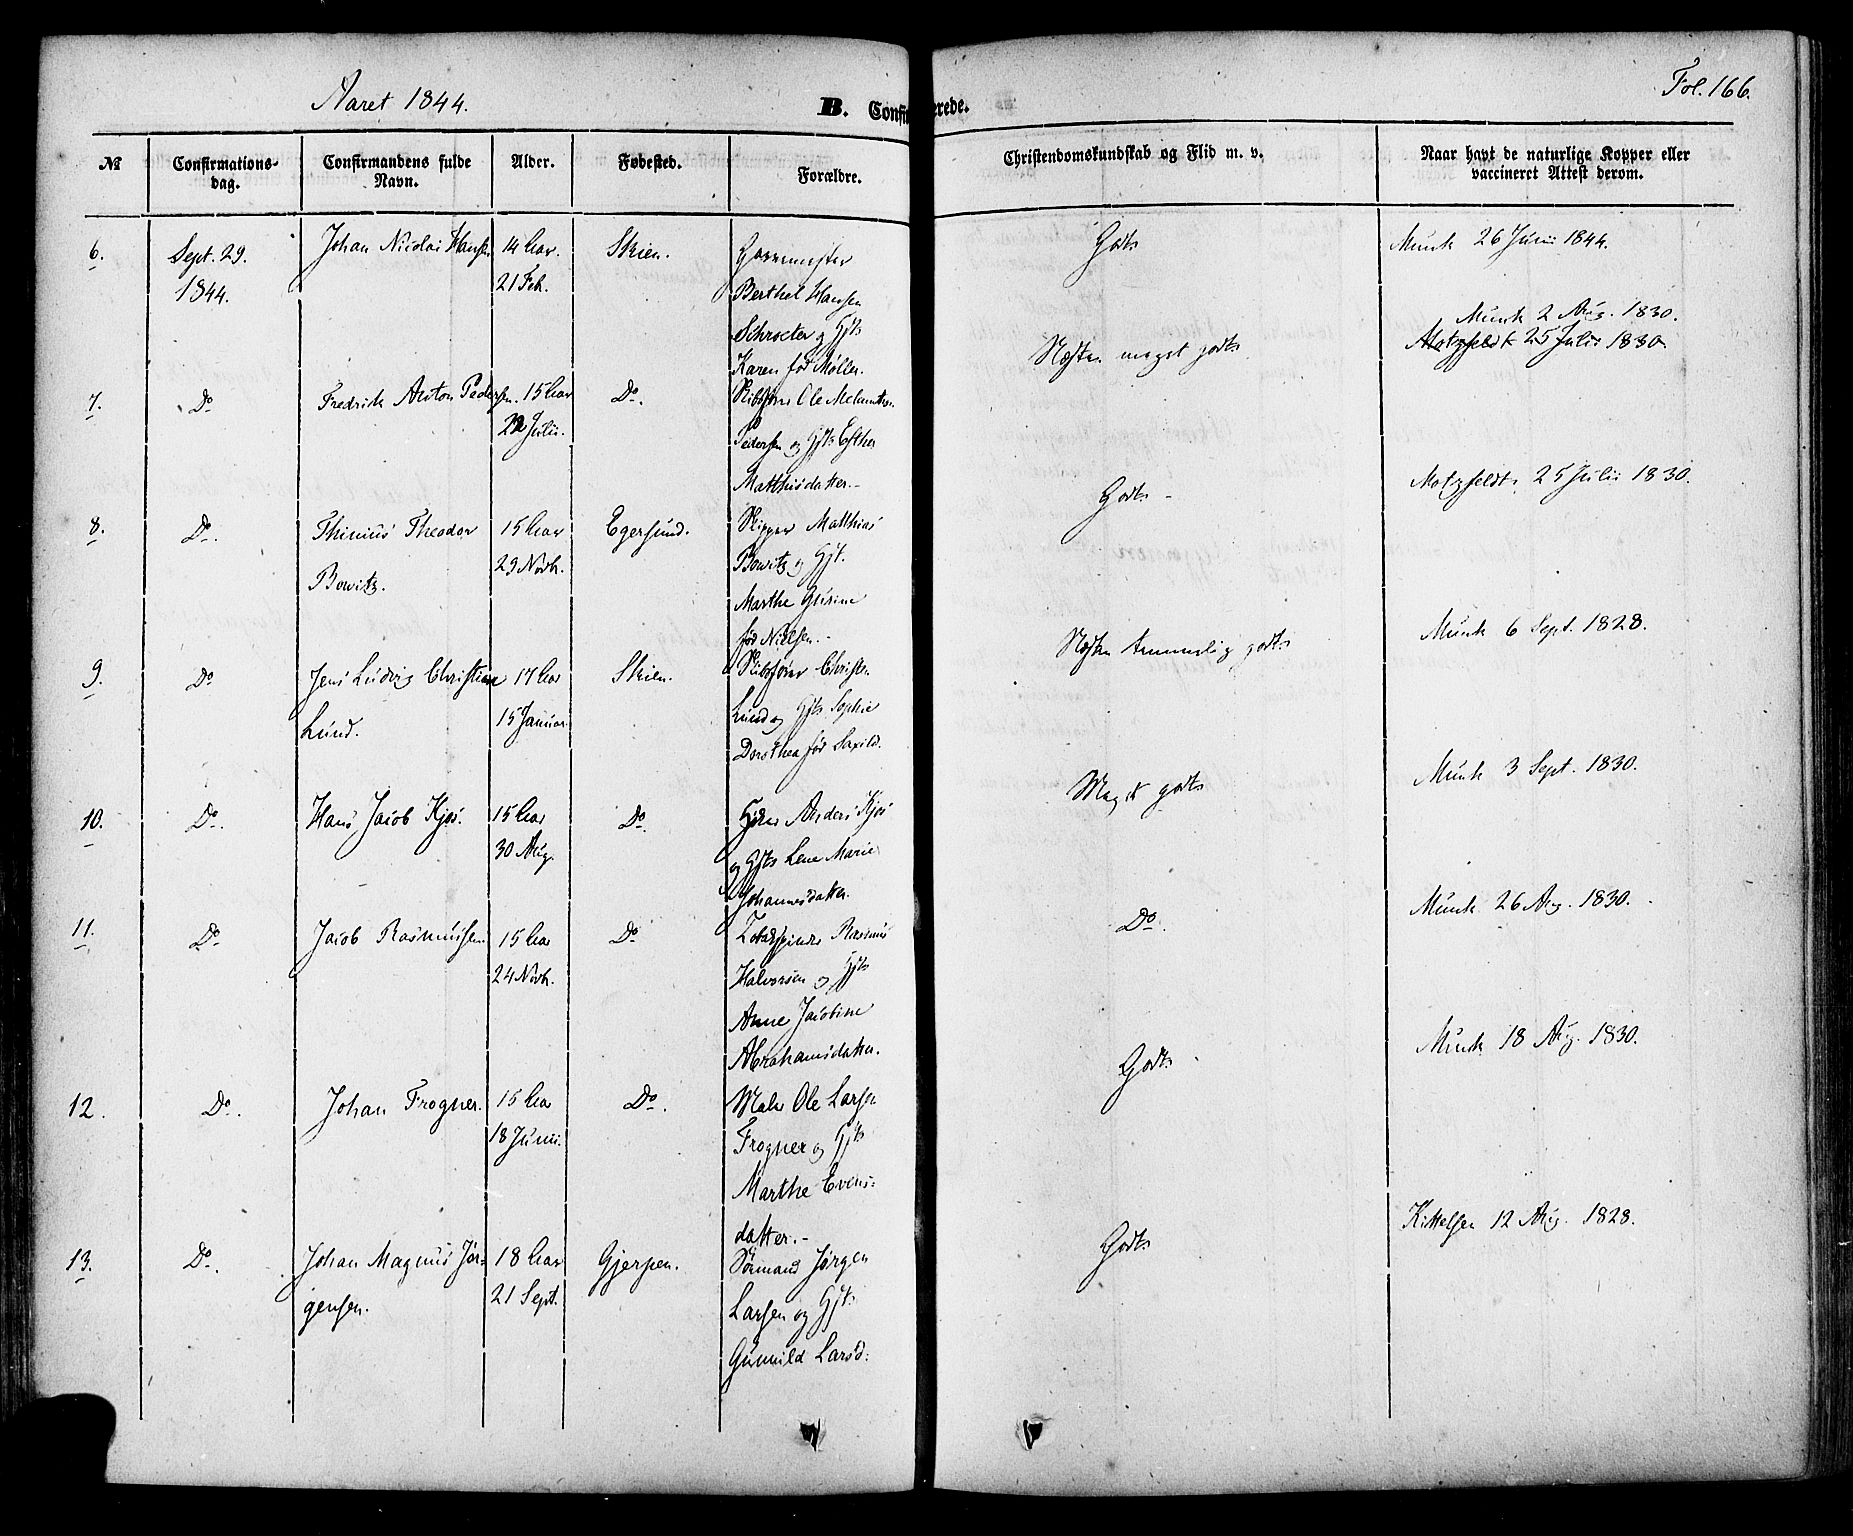 Aaret 1844.
B. Confirmerede.
Fol. 166.
№
Confirmations-
dag.
Confirmandens fulde
Navn.
Alder.
Fødested.
Forældre.
Christendomskundskab og Flid m. v.
Naar havt de naturlige Kopper eller
vaccineret Attest derom.
6.
Sept. 29.
1844.
Johan Nicolai Hansen
14 Aar
21 Feb.
Skien.
Berthel Hansen
Schrøeter og Hjts
Karen fød Møller.
Godt
Munk 26 Juni 1844.
7.
Do
Fredrik Anton Pedersen.
15 Aar
22 Julii.
Do.
Skibsfører Ole
Pedersen og Hjts Esther
Matthisdatter.-
Næsten meget godt
Munk 2 Aug. 1830.
Motzfeldt 25 Julii 1830.
8.
Do.
Thinius Theodor
Bowitz.
15 Aar
29 Novb.
Egersund.
Skipper Matthias
Bowitz og Hjt.
Marthe Gurine
fød Nielsen.-
Godt -
Motzfeldt 25 Julii 1830.
9.
Do
Jens Ludvig Christian
Lund.
17 Aar
15 Januar
Skien.
Skibsfører Christen
Lund og Hjts Sophie
Dorothea fød Saxild.
Næsten temmelig godt
Munk 6 Sept. 1828.
10.
Do.
Hans Jacob Kjøs.
15 Aar
30 Aug.
Do.
Anders Kjøs
og Hjts Lene Marie
Johannesdatter.
Meget godt
Munk 3 Sept. 1830.
11.
Do
Jacob Rasmussen
15 Aar
24 Novb.
Do
Rasmus
Halvorsen og Hjts
Anne Jacobine
Abrahamsdatter.
Do.
Munk 26 Aug. 1830.
12.
Do.
Johan Frogner.
15 Aar
18 Junii.
Do.
Maler Ole Larsen
Frogner og Hjts
Marthe Evens-
datter.-
Godt
Munk 18 Aug. 1830.
13.
Do.
Johan Magnus Jør-
gensen.
18 Aar
21 Sept.
Gjerpen.
Sømand Jørgen
Larsen og Hjts
Gunnild Larsd:
Godt
Kittelsen 12 Aug. 1828.